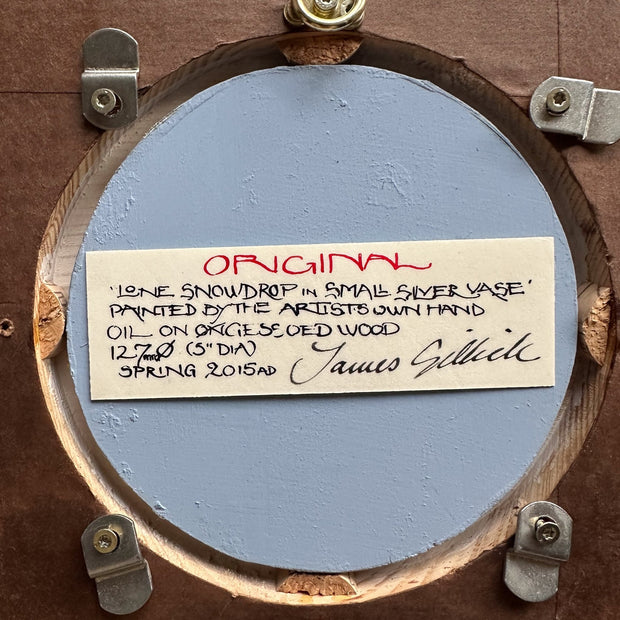 ORIGINAL
'LONE SNOWDROP IN SMALL SILVER VASE'
PAINTED BY THE ARTISTS OWN HAND
OIL ON GESSOED WOOD
127mmØ (5" DIA)
SPRING 2015 AD
James Gillick